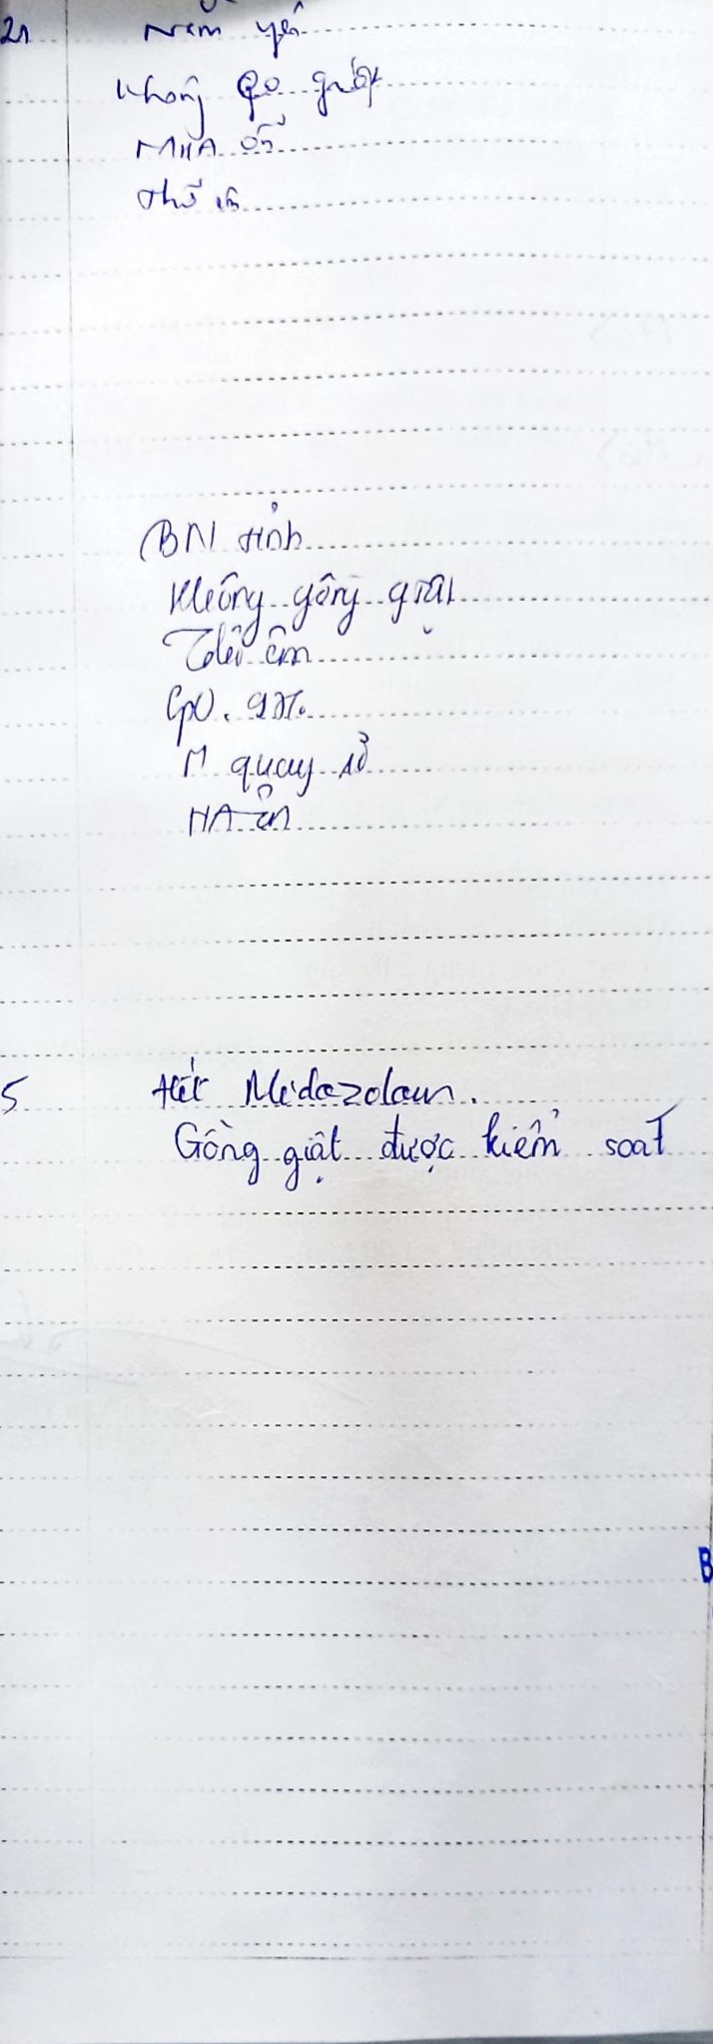 21 Nằm yên
Không gồ giật
M HA ổn
thở êm
BN tỉnh
Không gồng giật
Thở êm
SpO₂ 97%
M quay rõ
HA ổn
5 Hết Midazolam.
Gồng giật được kiểm soát
B